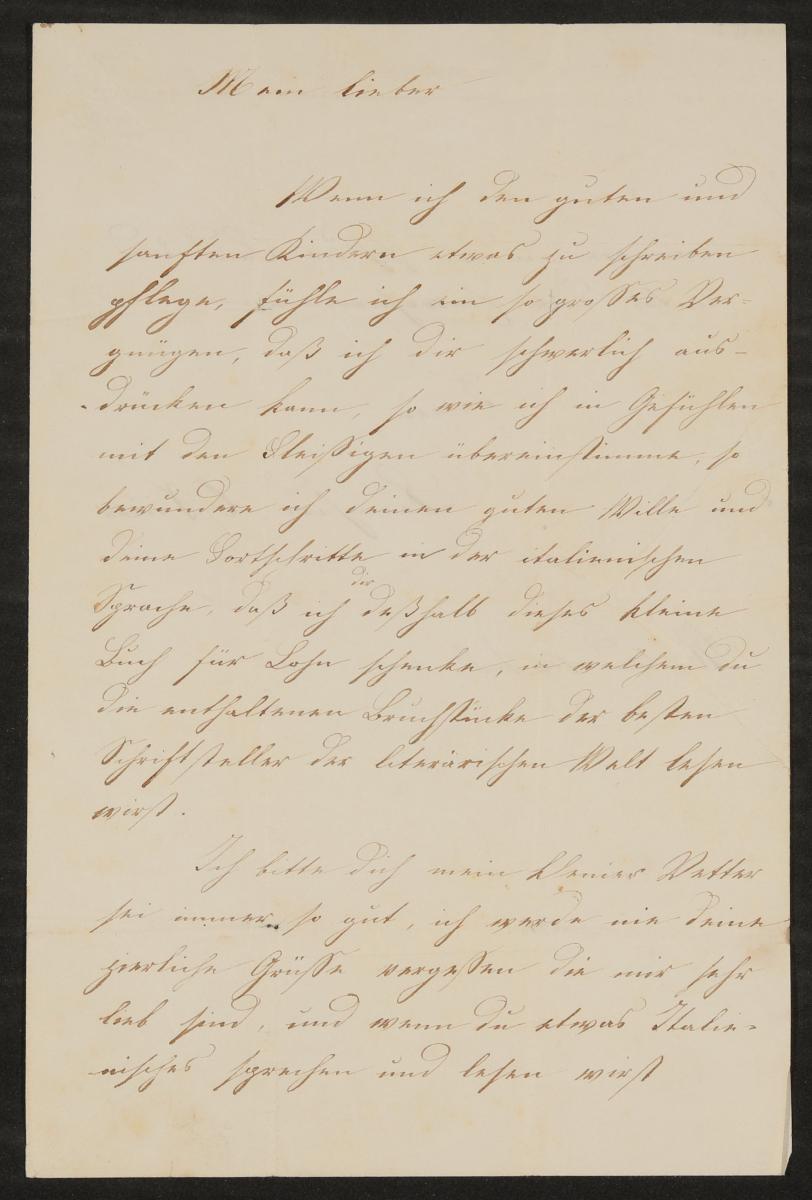 Mein lieber
Wenn ich den guten und
sanften Kindern etwas zu schreiben
pflege, fühle ich ein so grosses Ver-
gnügen, daß ich dir schwerlich aus-
drücken kann, so wie ich in Gefühlen
mit den Fleissigen übereinstimme, so
bewundere ich deinen guten Wille und
deine Fortschritte in der italienischen
Sprache, daß ich dir deßhalb dieses kleine
Buch für Lohn schenke, in welchem du
die enthaltenen Bruchstücke der besten
Schriftsteller der literärischen Welt lesen
wirst.
Ich bitte dich mein kleiner Vetter
sei immer so gut, ich werde nie deine
zierliche Grüsse vergessen die mir sehr
lieb sind, und wenn du etwas Italie-
nisches sprechen und lesen wirst